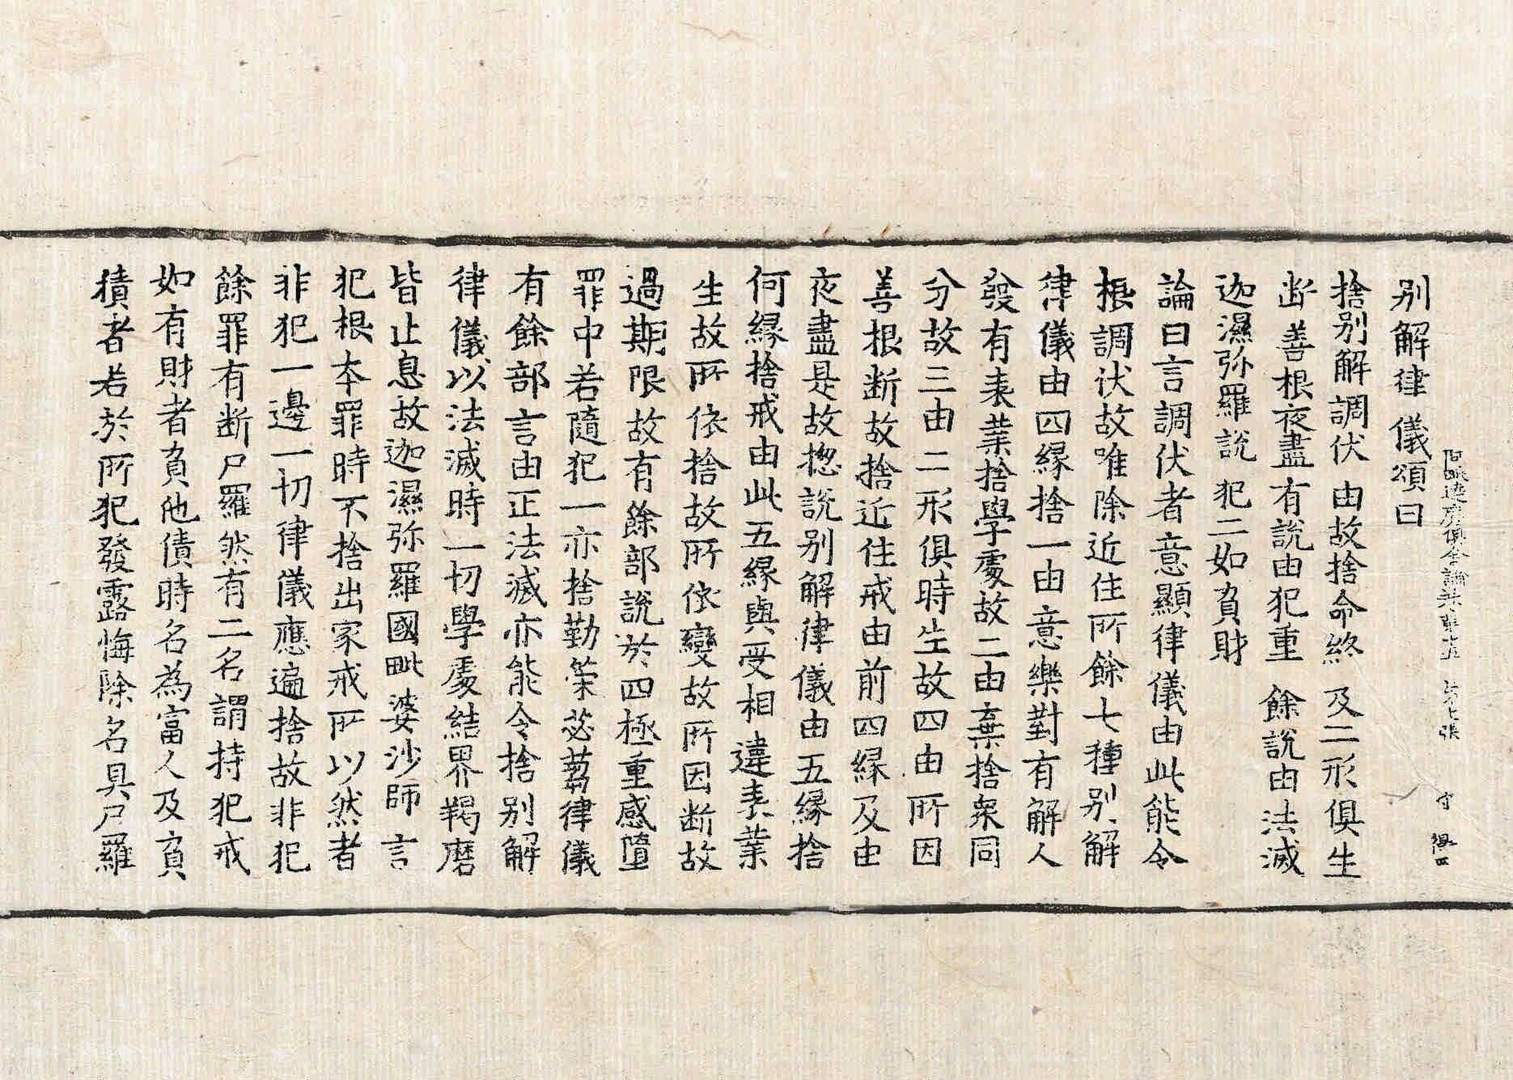 别解律儀頌曰
阿毗達磨俱舍論 第十五 第七張 守
捨别解調伏 由故捨命終 及二形俱生
断善根夜盡 有說由犯重 餘說由法滅
迦濕弥羅說 犯二如負財
論曰言調伏者意顯律儀由此能令
根調伏故唯除近住所餘七種别解
律儀由四緣捨一由意樂對有解人
發有表業捨學處故二由棄捨衆同
分故三由二形俱時生故四由所因
善根断故捨近住戒由前四緣及由
夜盡是故惣說别解律儀由五緣捨
何緣捨戒由此五緣與受相違表業
生故所依捨故所依變故所因断故
過期限故有餘部說於四極重感墮
罪中若隨犯一亦捨勤策苾芻律儀
有餘部言由正法滅亦能令捨别解
律儀以法滅時一切學處結界羯磨
皆止息故迦濕弥羅國毗婆沙師言
犯根本罪時不捨出家戒所以然者
非犯一邊一切律儀應遍捨故非犯
餘罪有断尸羅然有二名謂持犯戒
如有財者負他債時名為富人及負
債者若於所犯發露悔除名具尸羅